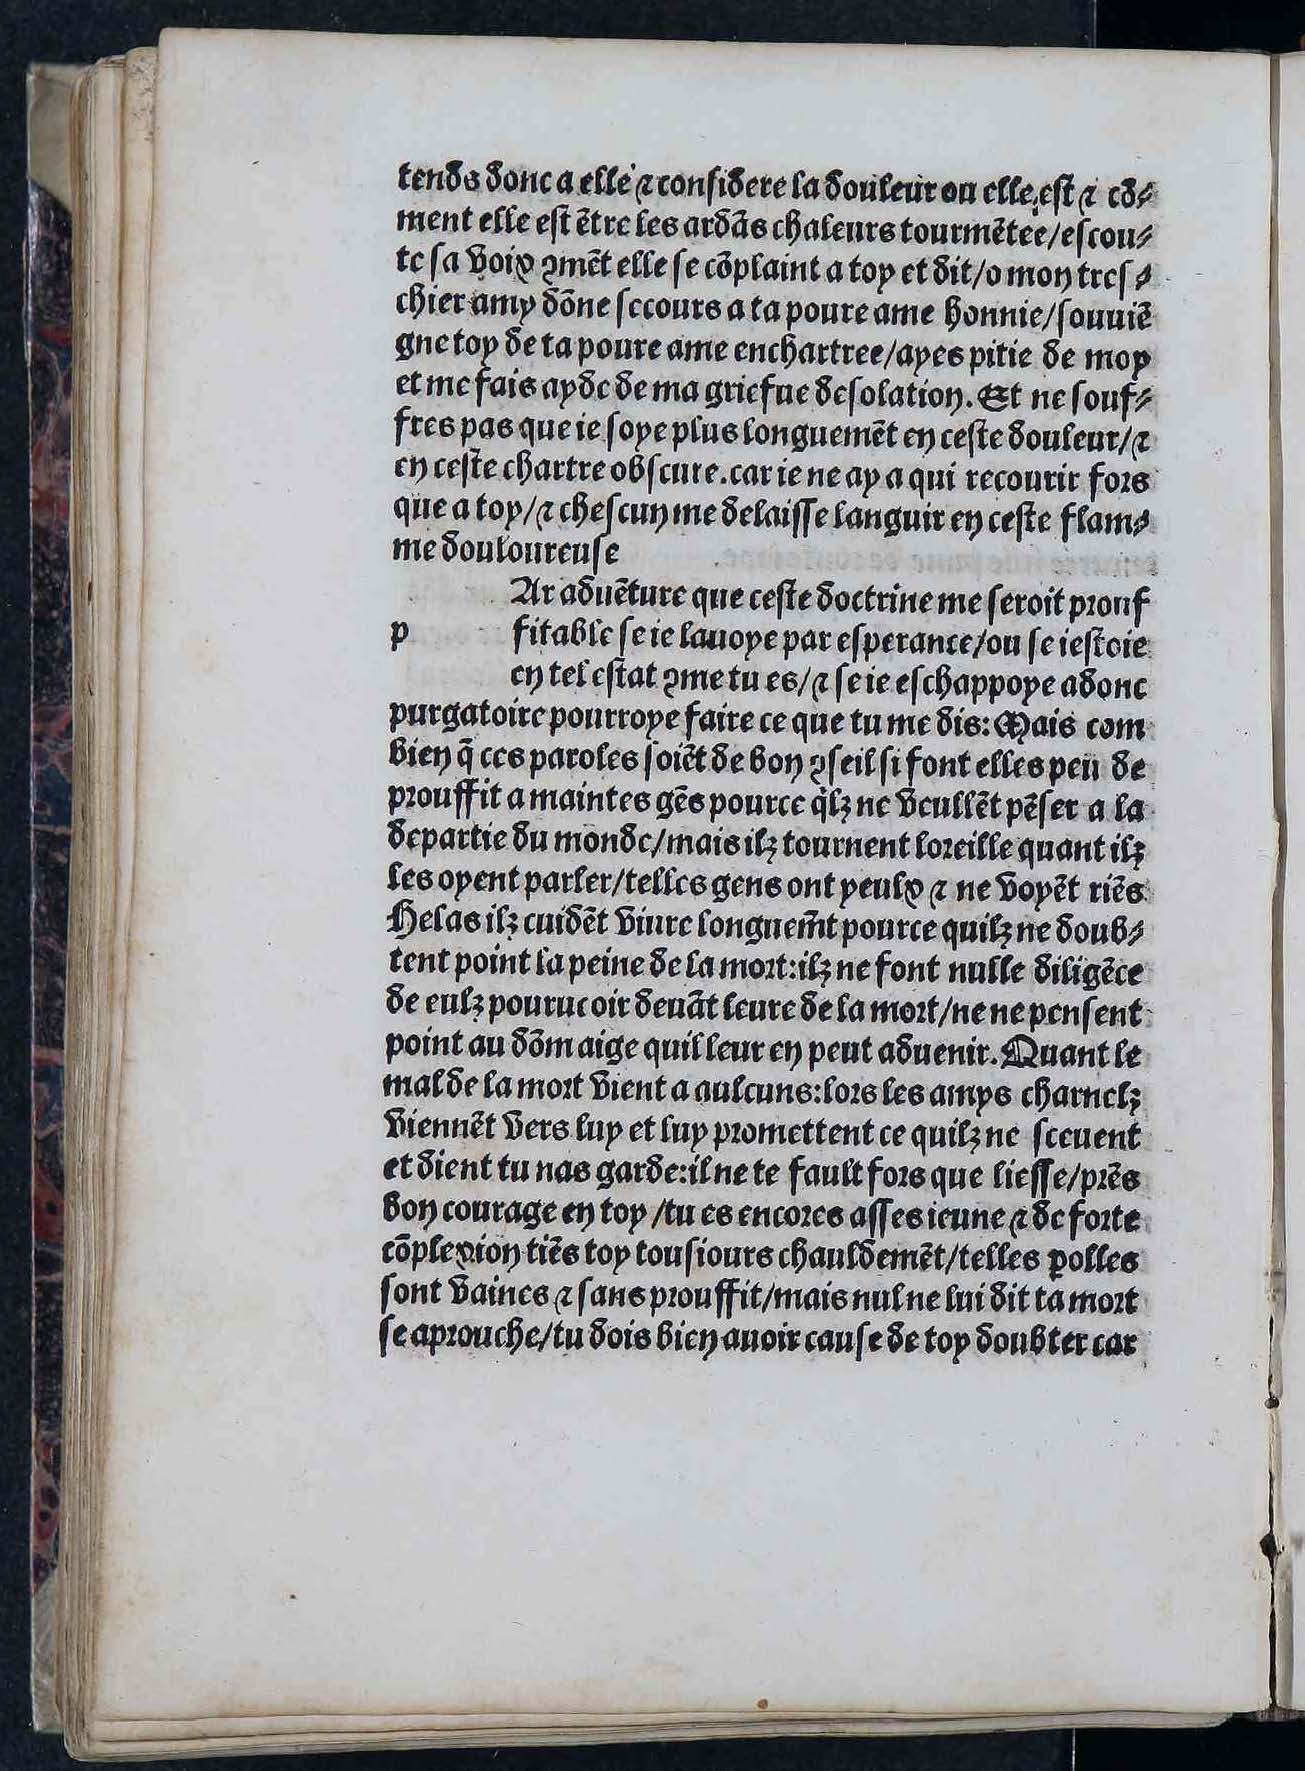 tends donc a elle ⁊ considere la douleur ou elle est ⁊ cõ⸗
ment elle est ẽtre les ardãs chaleurs tourmẽtee/escou⸗
te sa voix ꝯmẽt elle se cõplaint a toy et dit/o mon tres⸗
chier amy dõne secours a ta poure ame honnie/souuiẽ
gne toy de ta poure ame enchartree/ayes pitie de moy
et me fais ayde de ma griefue desolation. Et ne souf⸗
fres pas que ie soye plus longuemẽt en ceste douleur/⁊
en ceste chartre obscure.car ie ne ay a qui recourir fors
que a toy/⁊ chescun me delaisse languir en ceste flam⸗
me douloureuse
Ar aduẽture que ceste doctrine me seroit prouf
p fitable se ie lauoye par esperance/ou se iestoie
en tel estat ꝯme tu es/⁊ se ie eschappoye adonc
purgatoire pourroye faire ce que tu me dis: Mais com
bien q̃ ces paroles soiẽt de bon ꝯseil si font elles peu de
prouffit a maintes gẽs pource q̃lz ne veullẽt pẽser a la
departie du monde/mais ilz tournent loreille quant ilz
les oyent parler/telles gens ont yeulx ⁊ ne voyẽt riẽs
Helas ilz cuidẽt viure longuem̃t pource quilz ne doub⸗
tent point la peine de la mort:ilz ne font nulle diligẽce
de eulz pourueoir deuãt leure de la mort/ne ne pensent
point au dõmaige quil leur en peut aduenir. Quant le
mal de la mort vient a aulcuns:lors les amys charnelz
viennẽt vers luy et luy promettent ce quilz ne sceuent
et dient tu nas garde:il ne te fault fors que liesse/prẽs
bon courage en toy /tu es encores asses ieune ⁊ de forte
cõplexion tiẽs toy tousiours chauldemẽt/telles ꝑolles
sont vaines ⁊ sans prouffit/mais nul ne lui dit ta mort
se aprouche/tu dois bien auoir cause de toy doubter car